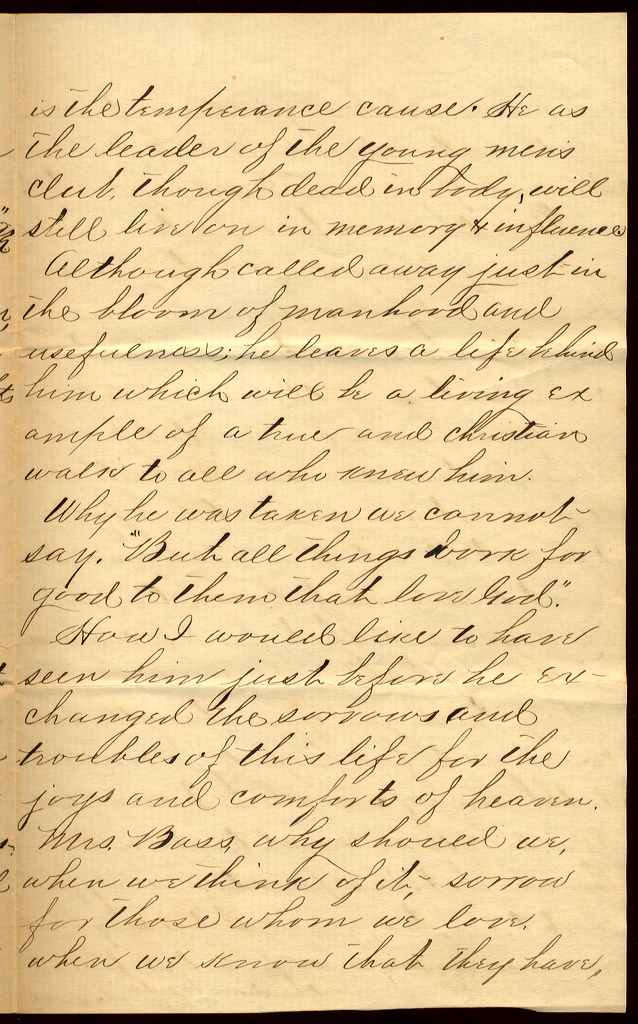 is the temperance cause. He as
the leader of the young men's
club, though dead in body, will
still live on in memory & influence
Although called away just in
the bloom of manhood and
usefulness; he leaves a life behind
him which will be a living ex
ample of a true and christian
walk to all who knew him.
Why he was taken we cannot
say. "But all things work for
good to them that love God".
How I would like to have
seen him just before he ex-
changed the sorrows and
troubles of this life for the
joys and comforts of heaven.
Mrs. Bass, why should we,
when we think of it, sorrow
for those whom we love,
when we know that they have,